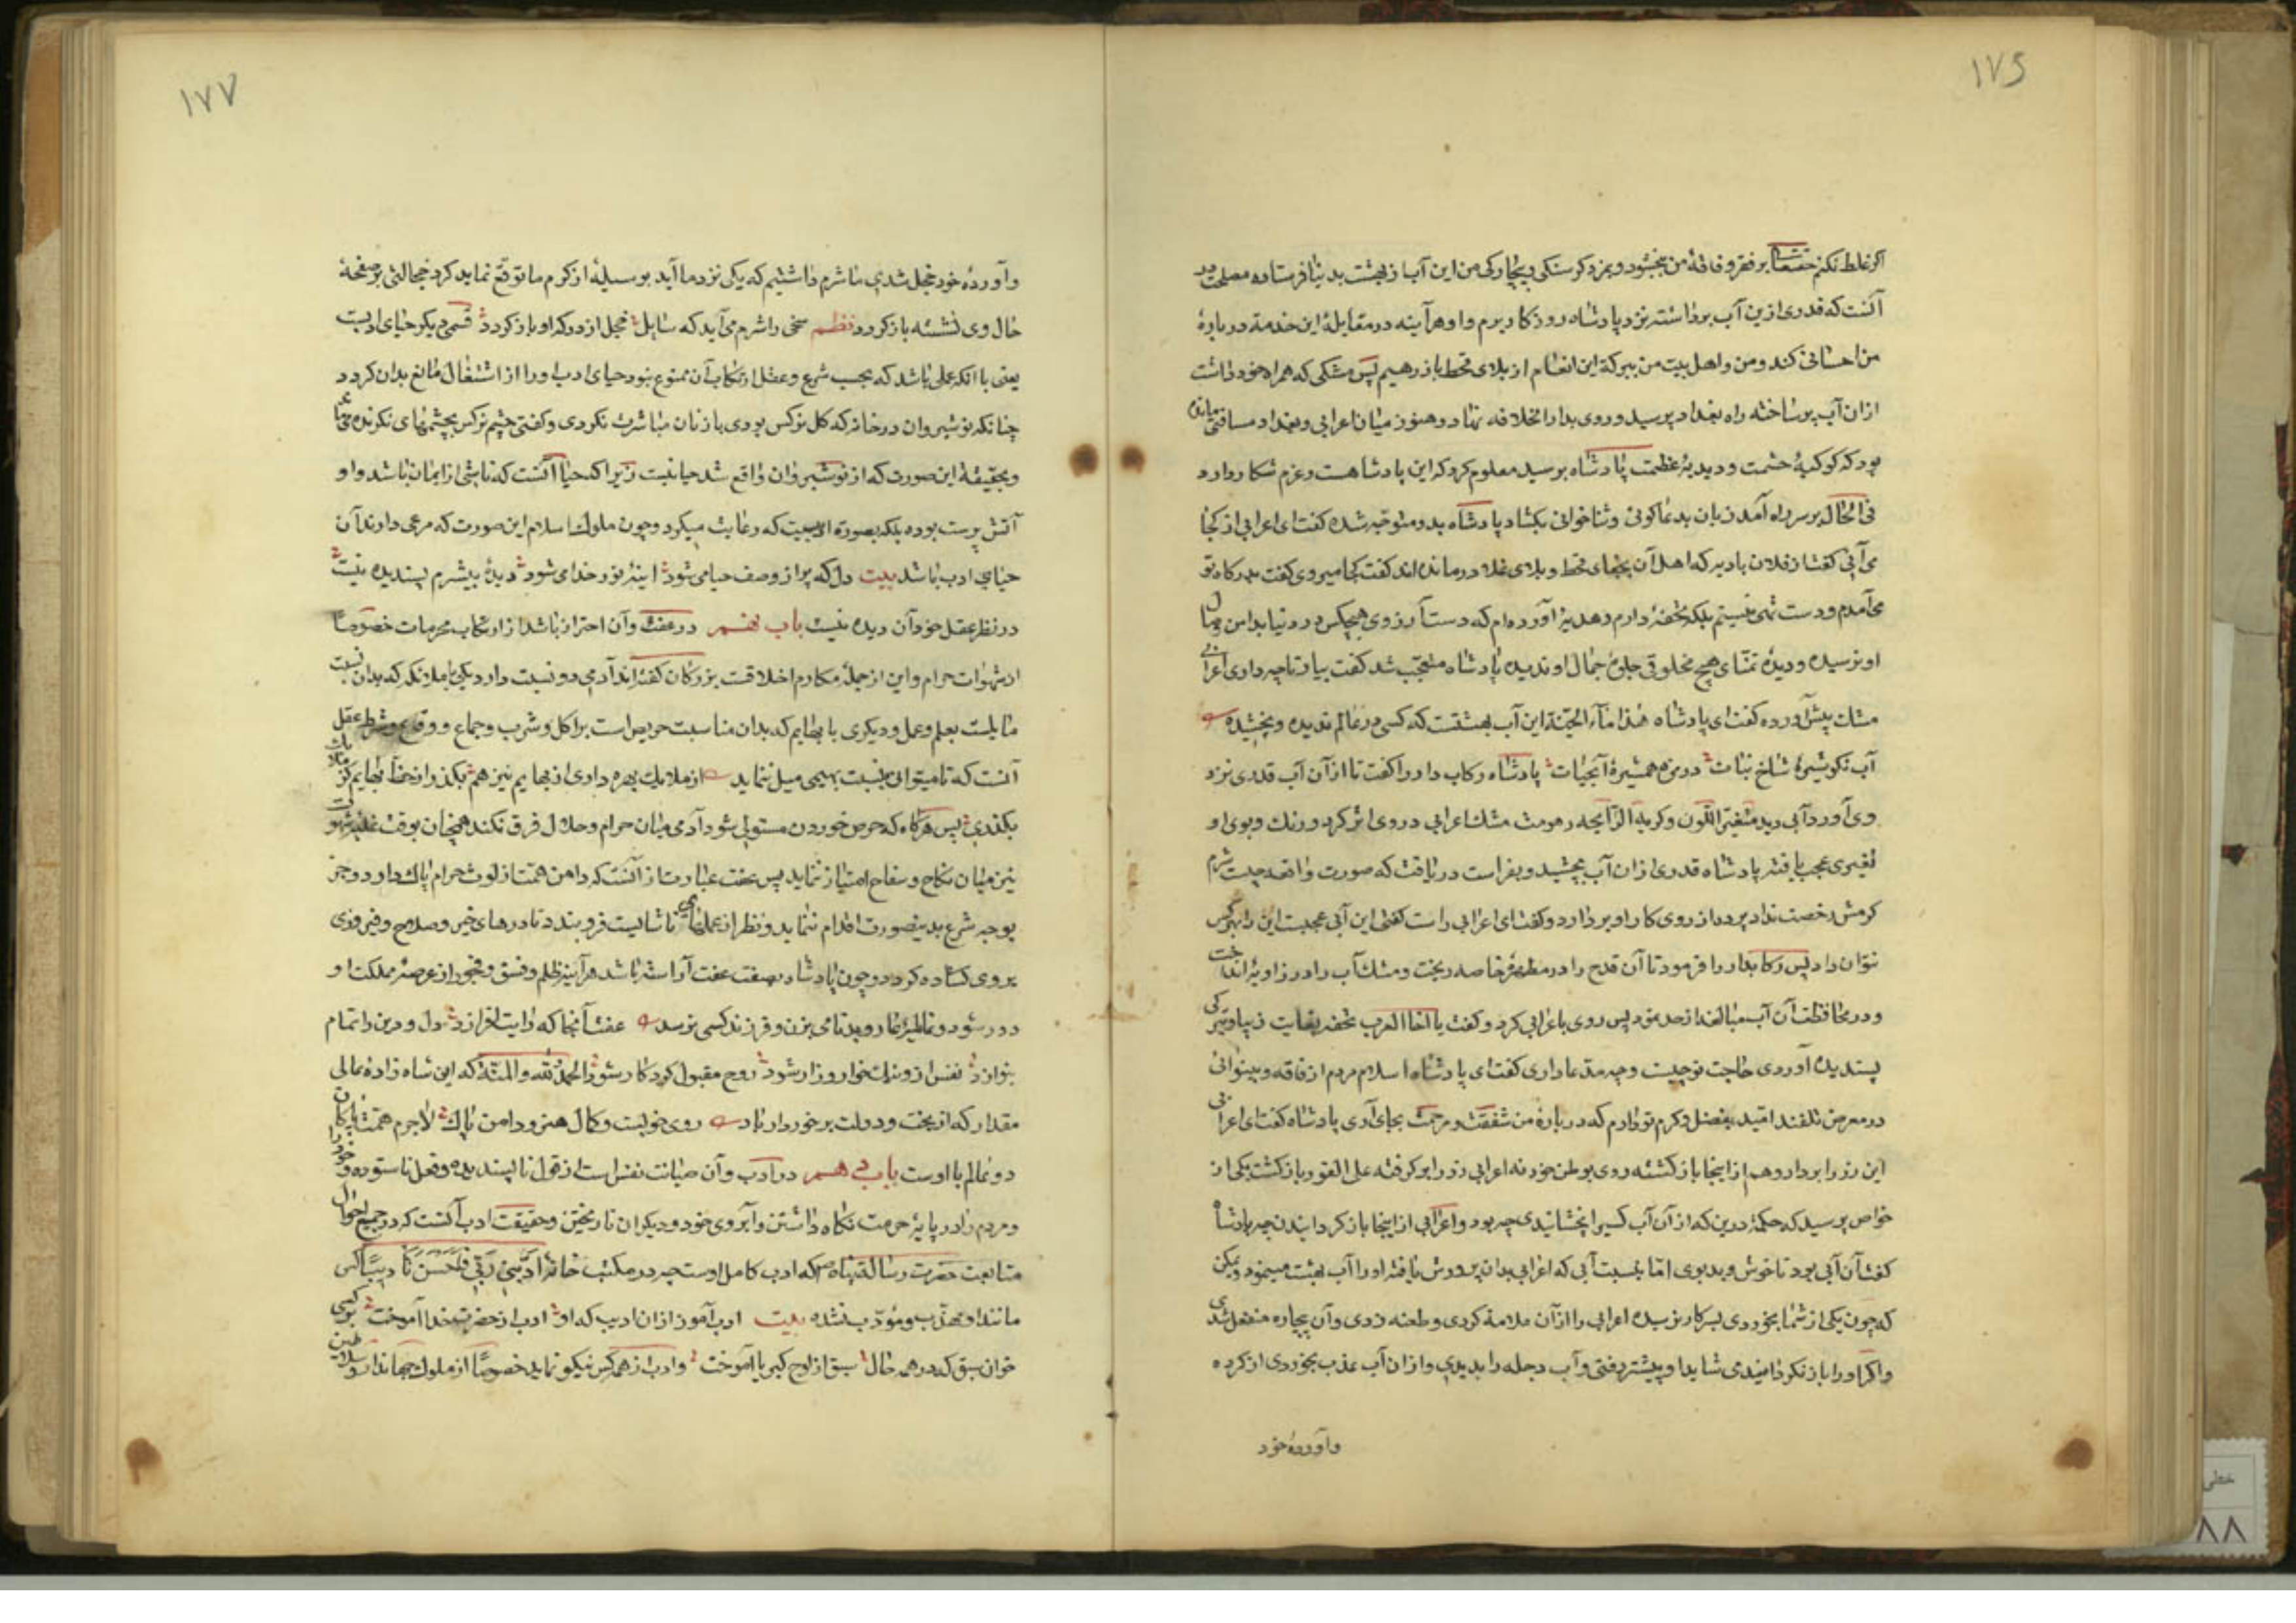 ۱۷۶
اگر غلط نکنم حقتعالی بر فقر و فاقهٔ من ببخشود و بمزد گرسنگی و بیچارگی من این آب از بهشت بدنیا فرستاده مصلحت در
آنست که قدری ازین آب برداشته نزد پادشاه روزگار برم و او هرآینه در مقابلهٔ این خدمة دربارهٔ
من احسانی کند و من و اهل بیت من ببرکة این انعام از بلای قحط باز رهیم پس مشکی که همراه خود داشت
ازان آب پر ساخته راه بغداد پرسید و روی بدار الخلافه نهاد و هنوز میان اعرابی و بغداد مسافتی مانده
بود که کوکبهٔ حشمت و دبدبهٔ عظمت پادشاه برسید معلوم کرد که این پادشاهست و عزم شکار دارد
فی الحال بر سر راه آمد زبان بدعاگوئی و ثناخوانی بگشاد پادشاه بدو متوجه شده گفت ای اعرابی از کجا
می آئی گفت از فلان بادیه که اهل آن بجفای قحط و بلای غلا درمانده اند گفت کجا میروی گفت بدرگاه تو
می آمدم و دست تهی نیستم بلکه تحفهٔ دارم و هدیهٔ آورده ام که دست آرزوی هیچکس در دنیا بدامن وصال
او نرسیده و دیدهٔ تمنّای هیچ مخلوقی جلوهٔ جمال او ندیده پادشاه متعجّب شد گفت بیار تا چه داری اعرابی
مشک پیش آورده گفت ای پادشاه هذا مآء الجنّة این آب بهشتست که کسی در عالم ندیده و نچشیده
آب نگو شیرهٔ شاخ نبات در مزه همشیرهٔ آبحیات پادشاه رکاب دار را گفت تا از آن آب قدری نزد
وی آورد آبی دید متغیّر اللّون و کریه الرّایحه زهومت مشک اعرابی در وی اثر کرد و رنگ و بوی او
تغیری عجب یافته پادشاه قدری ازان آب بچشید و بفراست دریافت که صورت واقعه چیست شرم
کرمش رخصت نداد پرده از روی کار او بر دارد و گفت ای اعرابی راست گفتی این آبی عجبست این را بهرکس
نتوان داد پس رکابدار را فرمود تا آن قدح را در مطهرهٔ خاصه ریخت و مشک آب را در زاویهٔ انداخت
و در محافظت آن آب مبالغه از حد نمود پس روی باعرابی کرد و گفت یا اخا العرب تحفه بغایت زیبا و تبرکی
پسندیده آوردی حاجت تو چیست و چه مدّعا داری گفت ای پادشاه اسلام مردم از فاقه و بینوائی
در معرض تلفند امّید بفضل و کرم تو دارم که دربارهٔ من شفقت و مرحمت بجای آری پادشاه گفت ای اعرابی
این زر را بردار و هم از اینجا بازگشته روی بوطن خود نه اعرابی زر را برگرفته علی الفور بازگشت یکی از
خواص پرسید که حکمة درین که از آن آب کسیرا نچشانیدی چه بود و اعرابی از اینجا باز گردانیدن چه پادشاه
گفت آن آبی بود ناخوش و بدبوی امّا بنسبت آبی که اعرابی بدان پرورش یافته او را آب بهشت مینمود و یمکن
که چون یکی از شما بخوردی بسر کار نرسیده اعرابی را از آن ملامة کردی و طعنه زدی و آن بیچاره منفعل شدی
و اگر او را باز نگردانیدی شاید او پیشتر رفتی و آب دجله را بدیدی و ازان آب عذب بخوردی از کرده
و آوردهٔ خود
۱۷۷
و آوردهٔ خود خجل شدی ما شرم داشتیم که یکی نزد ما آید بوسیلهٔ از کرم ما توقّع نماید گرد خجالتی بر صفحهٔ
حال وی نشسته باز گردد نظم سخی را شرم می آید که سایل خجل از درگه او باز گردد قسمی دیگر حیای ادبست
یعنی با آنکه عملی باشد که بحسب شرع و عقل ارتکاب آن ممنوع نبود حیای ادب او را از اشتغال مانع بدان گردد
چنانکه نوشیروان در خانه که گل نرگس بودی با زنان مباشرت نکردی و گفتی چشم نرگس بچشمهای نگرنده می ماند
و بحقیقة این صورت که از نوشیروان واقع شد حیا نیست زیرا که حیا آنست که ناشی از ایمان باشد و او
آتش پرست بوده بلکه بصورة ادبیست که رعایت میکرد و چون ملوک اسلام این صورت که مرعی دارند آن
حیای ادب باشد بیت دل که پر از وصف حیا می شود آینهٔ نور خدا می شود دیدهٔ بیشرم پسندیده نیست
در نظر عقل خود آن دیده نیست باب نهم در عفت و آن احتراز باشد از ارتکاب محرمات خصوصاً
از شهوات حرام و این از جملهٔ مکارم اخلاقست بزرگان گفته اند آدمی دو نسبت دارد یکی با ملائکه که بدان نسبت
مایلست بعلم و عمل و دیگری با بهایم که بدان مناسبت حریص است بر اکل و شرب و جماع و وقاع و شرط عقل
آنست که تا میتوانی بنسبت بهیمی میل ننماید از ملایک بهره داری از بهایم نیز هم بگذر از حظ بهایم کز ملایک
بگذری پس هرگاه که حرص خوردن مستولی شود آدمی میان حرام و حلال فرق نکند همچنان بوقت غلبهٔ شهوت
نیز میان نکاح و سفاح امتیاز ننماید پس عفت عبارت از آنست که دامن همت از لوث حرام پاک دارد و جز
بوجه شرع بدینصورت اقدام ننماید و نظر از عملهای ناشایست فرو بندد تا درهای خیر و صلاح و فیروزی
بروی گشاده گردد و چون پادشاه بصفت عفت آراسته باشد هرآینه ظلم و فسق و فجور از عرصهٔ مملکت او
دور شود و عالمیان را بدنامی بزن و فرزند کسی نرسد عفت آنجا که رایت افرازد دل و دین را تمام
بنوازد نفس ازو خوار و زار شود روح مقبول کردگار شود الحمد لله و المنّة که این شاه زادهٔ عالی
مقدار که از بخت و دولت برخوردار باد روی خوبست و کمال هنر و دامن پاک لاجرم همّت پاکان
دو عالم با اوست باب دهم در ادب و آن صیانت نفس است از قول ناپسندیده و فعل ناستوده و خود را
و مردم را در پایهٔ حرمت نگاه داشتن و آبروی خود و دیگران نا ریختن و حقیقت ادب آنست که در جمیع احوال
متابعت حضرت رسالت پناه ص که ادب کامل اوست چه در مکتب خانهٔ ادّبنی ربّی فاحسن تادیبی کس
مانند او مهذّب و مؤدّب نشده بیت ادب آموز ازان ادیب که او ادب از حضرت خدا آموخت بر کسی
خوان سبق که در همه حال سبق از لوح کبریا آموخت و ادب از همه کس نیکو نماید خصوصاً از ملوک جهاندار و سلاطین
خطی
۸۸